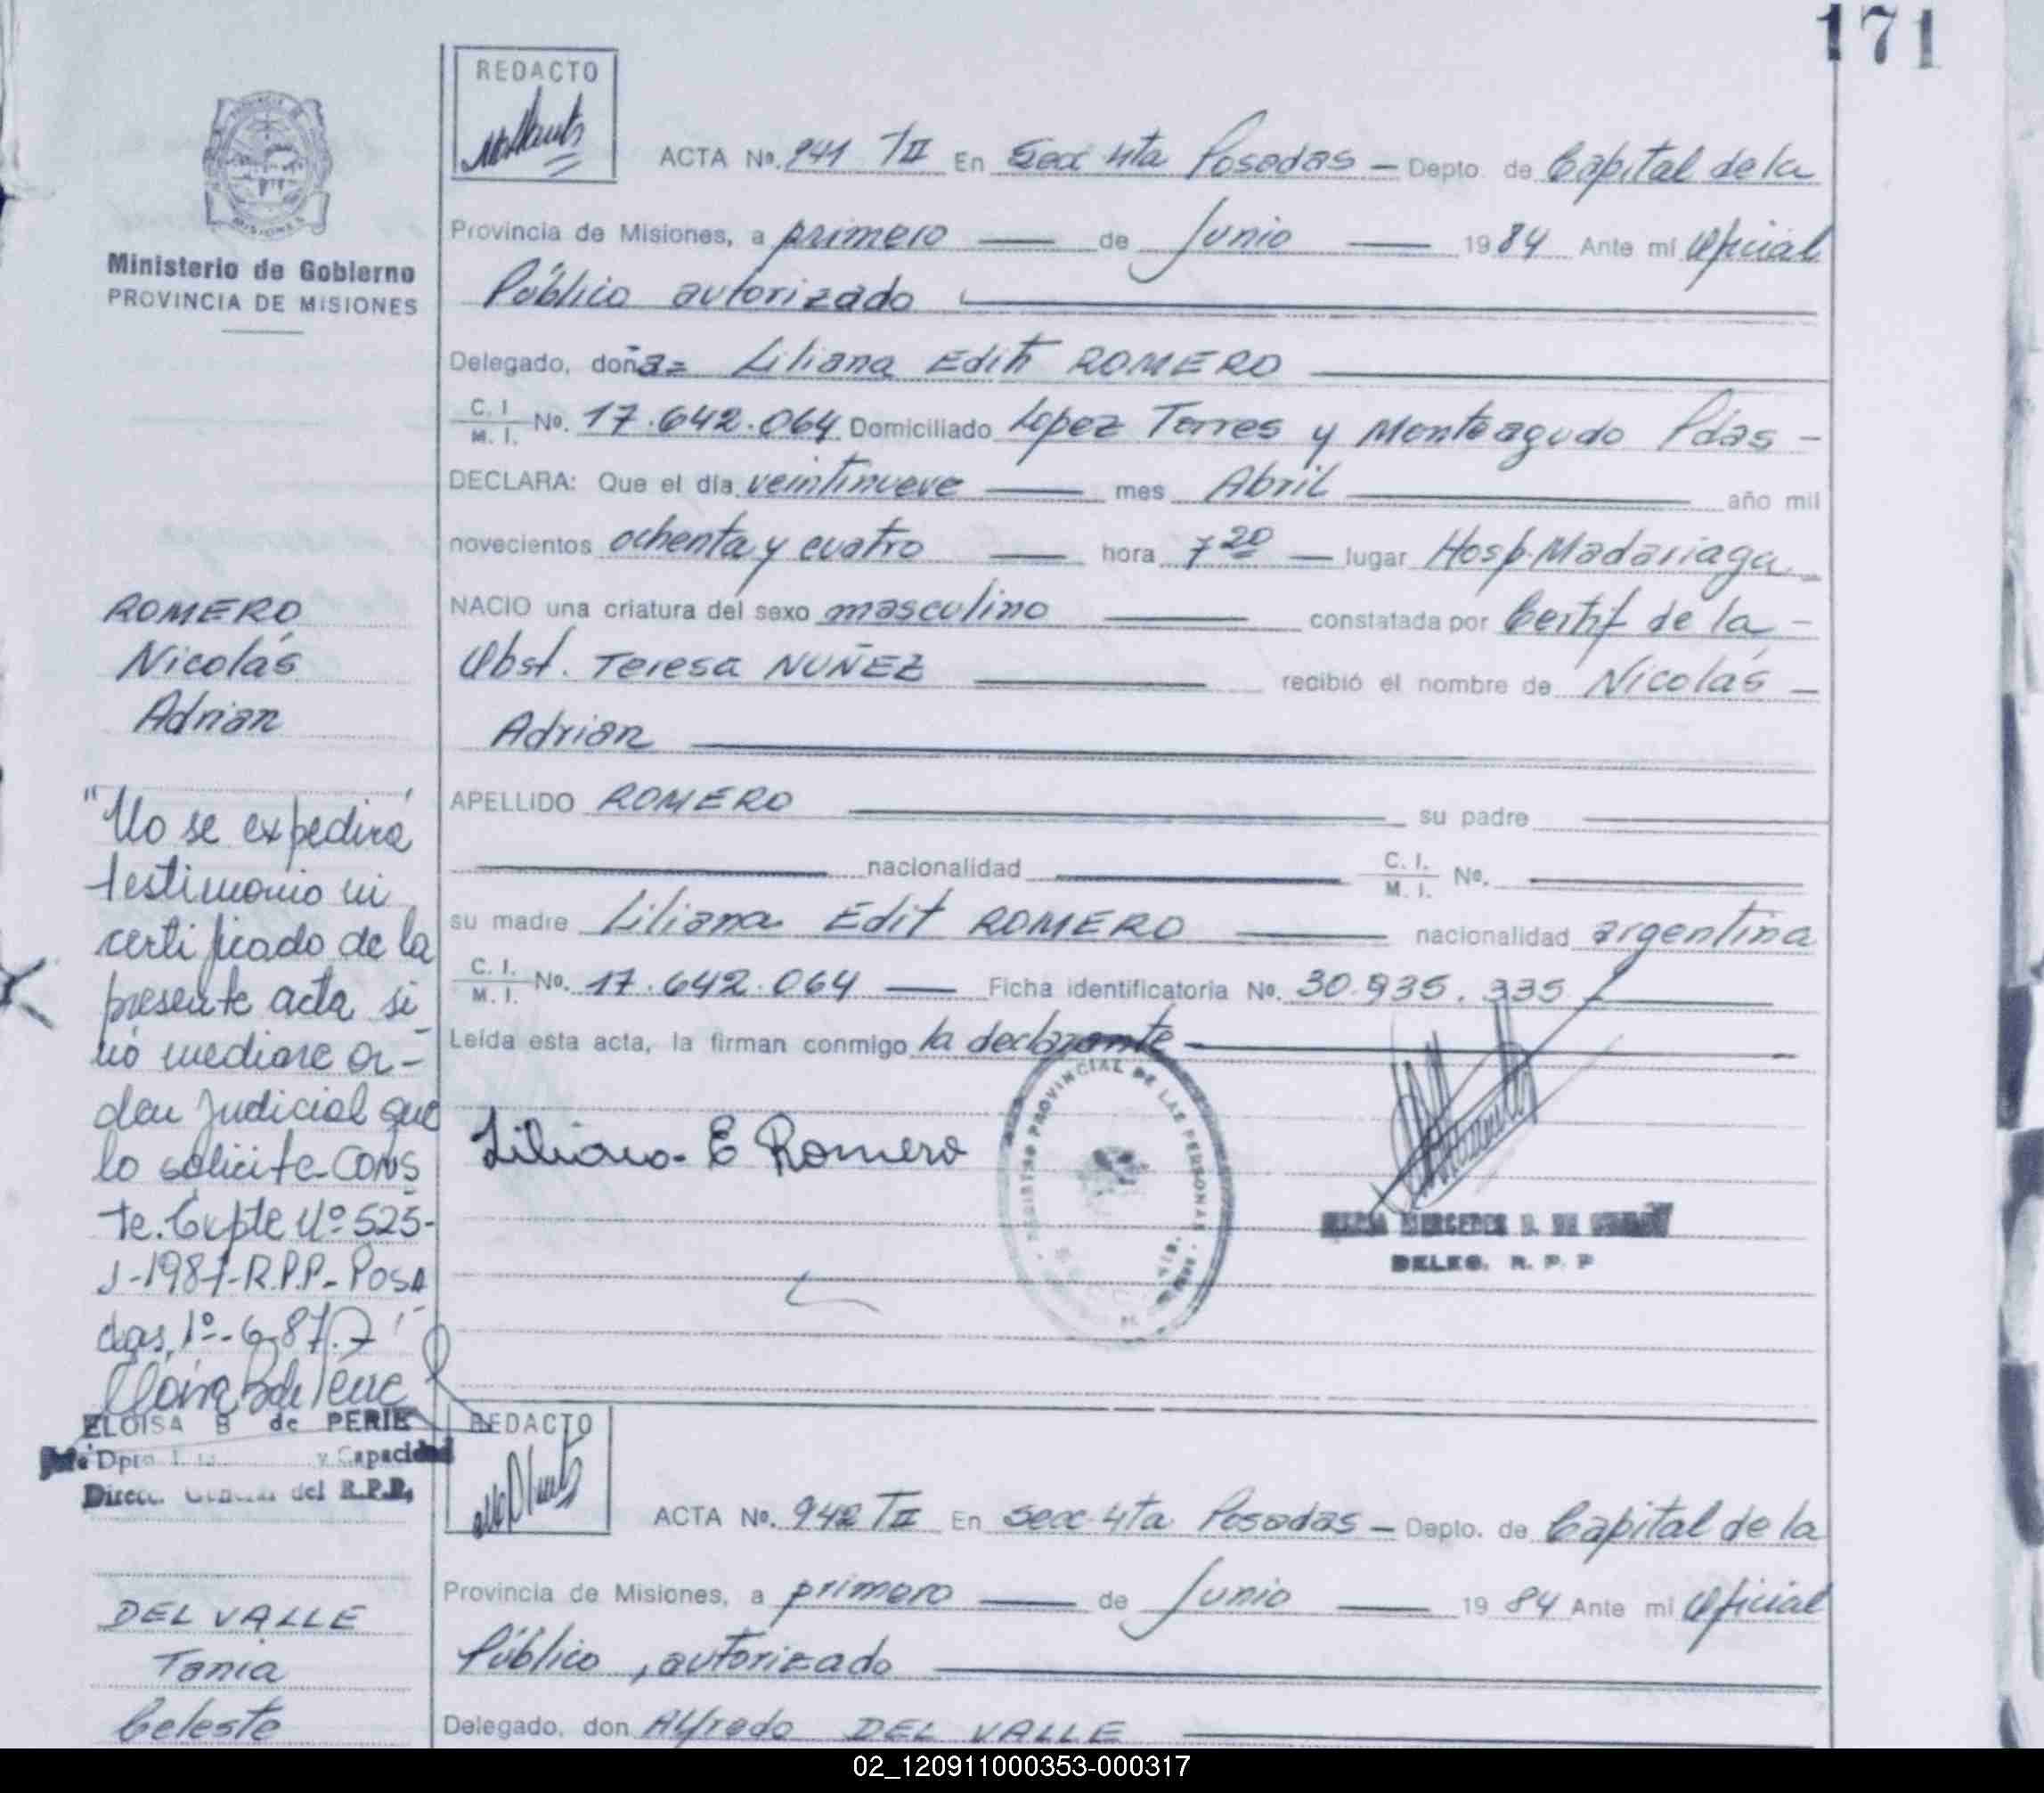 171
REDACTO
ACTA No. 941 TII En Secc 4ta Posadas — Depto. de Capital de la
Provincia de Misiones, a primero — de Junio — 1984 Ante mí Oficial
Público autorizado
Delegado, doña = Liliana Edith ROMERO
C. I. M. I. No. 17.642.064 Domiciliado Lopez Torres y Monteagudo Pdas —
DECLARA: Que el día veintinueve — mes Abril — año mil
novecientos ochenta y cuatro — hora 7 20 — lugar Hosp. Madariaga
NACIO una criatura del sexo masculino — constatada por Certif de la —
Obst. Teresa NUÑEZ — recibió el nombre de Nicolás —
Adrian
APELLIDO ROMERO — su padre —
— nacionalidad — C. I. M. I. No. —
su madre Liliana Edit ROMERO — nacionalidad argentina
C. I. M. I. No. 17.642.064 — Ficha identificatoria No. 30.935.335 —
Leída esta acta, la firman conmigo la declarante —
Liliana E Romero
REGISTRO PROVINCIAL DE LAS PERSONAS
DELEG. R. P. P
PROVINCIA DE
MISIONES
Ministerio de Gobierno
PROVINCIA DE MISIONES
ROMERO
Nicolás
Adrian
"No se expedirá
testimonio ni
certificado de la
presente acta si
nó mediare or-
den Judicial que
lo solicite-CONS
te. Expte Nº 525-
J-1987-R.P.P.-POSA
das, 1º-6-87."
ELOISA B de PERIE
Jefe Dpto. y Capacidad
Direcc. General del R.P.P.
REDACTO
ACTA No. 942 TII En Secc 4ta Posadas — Depto. de Capital de la
Provincia de Misiones, a primero — de Junio — 1984 Ante mí Oficial
Público, autorizado
Delegado, don Alfredo DEL VALLE
DEL VALLE
Tania
Celeste
02_120911000353-000317